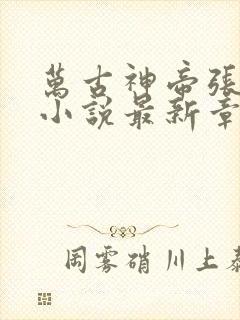 萬古神帝張
小說最新章
周雾硝川上泰